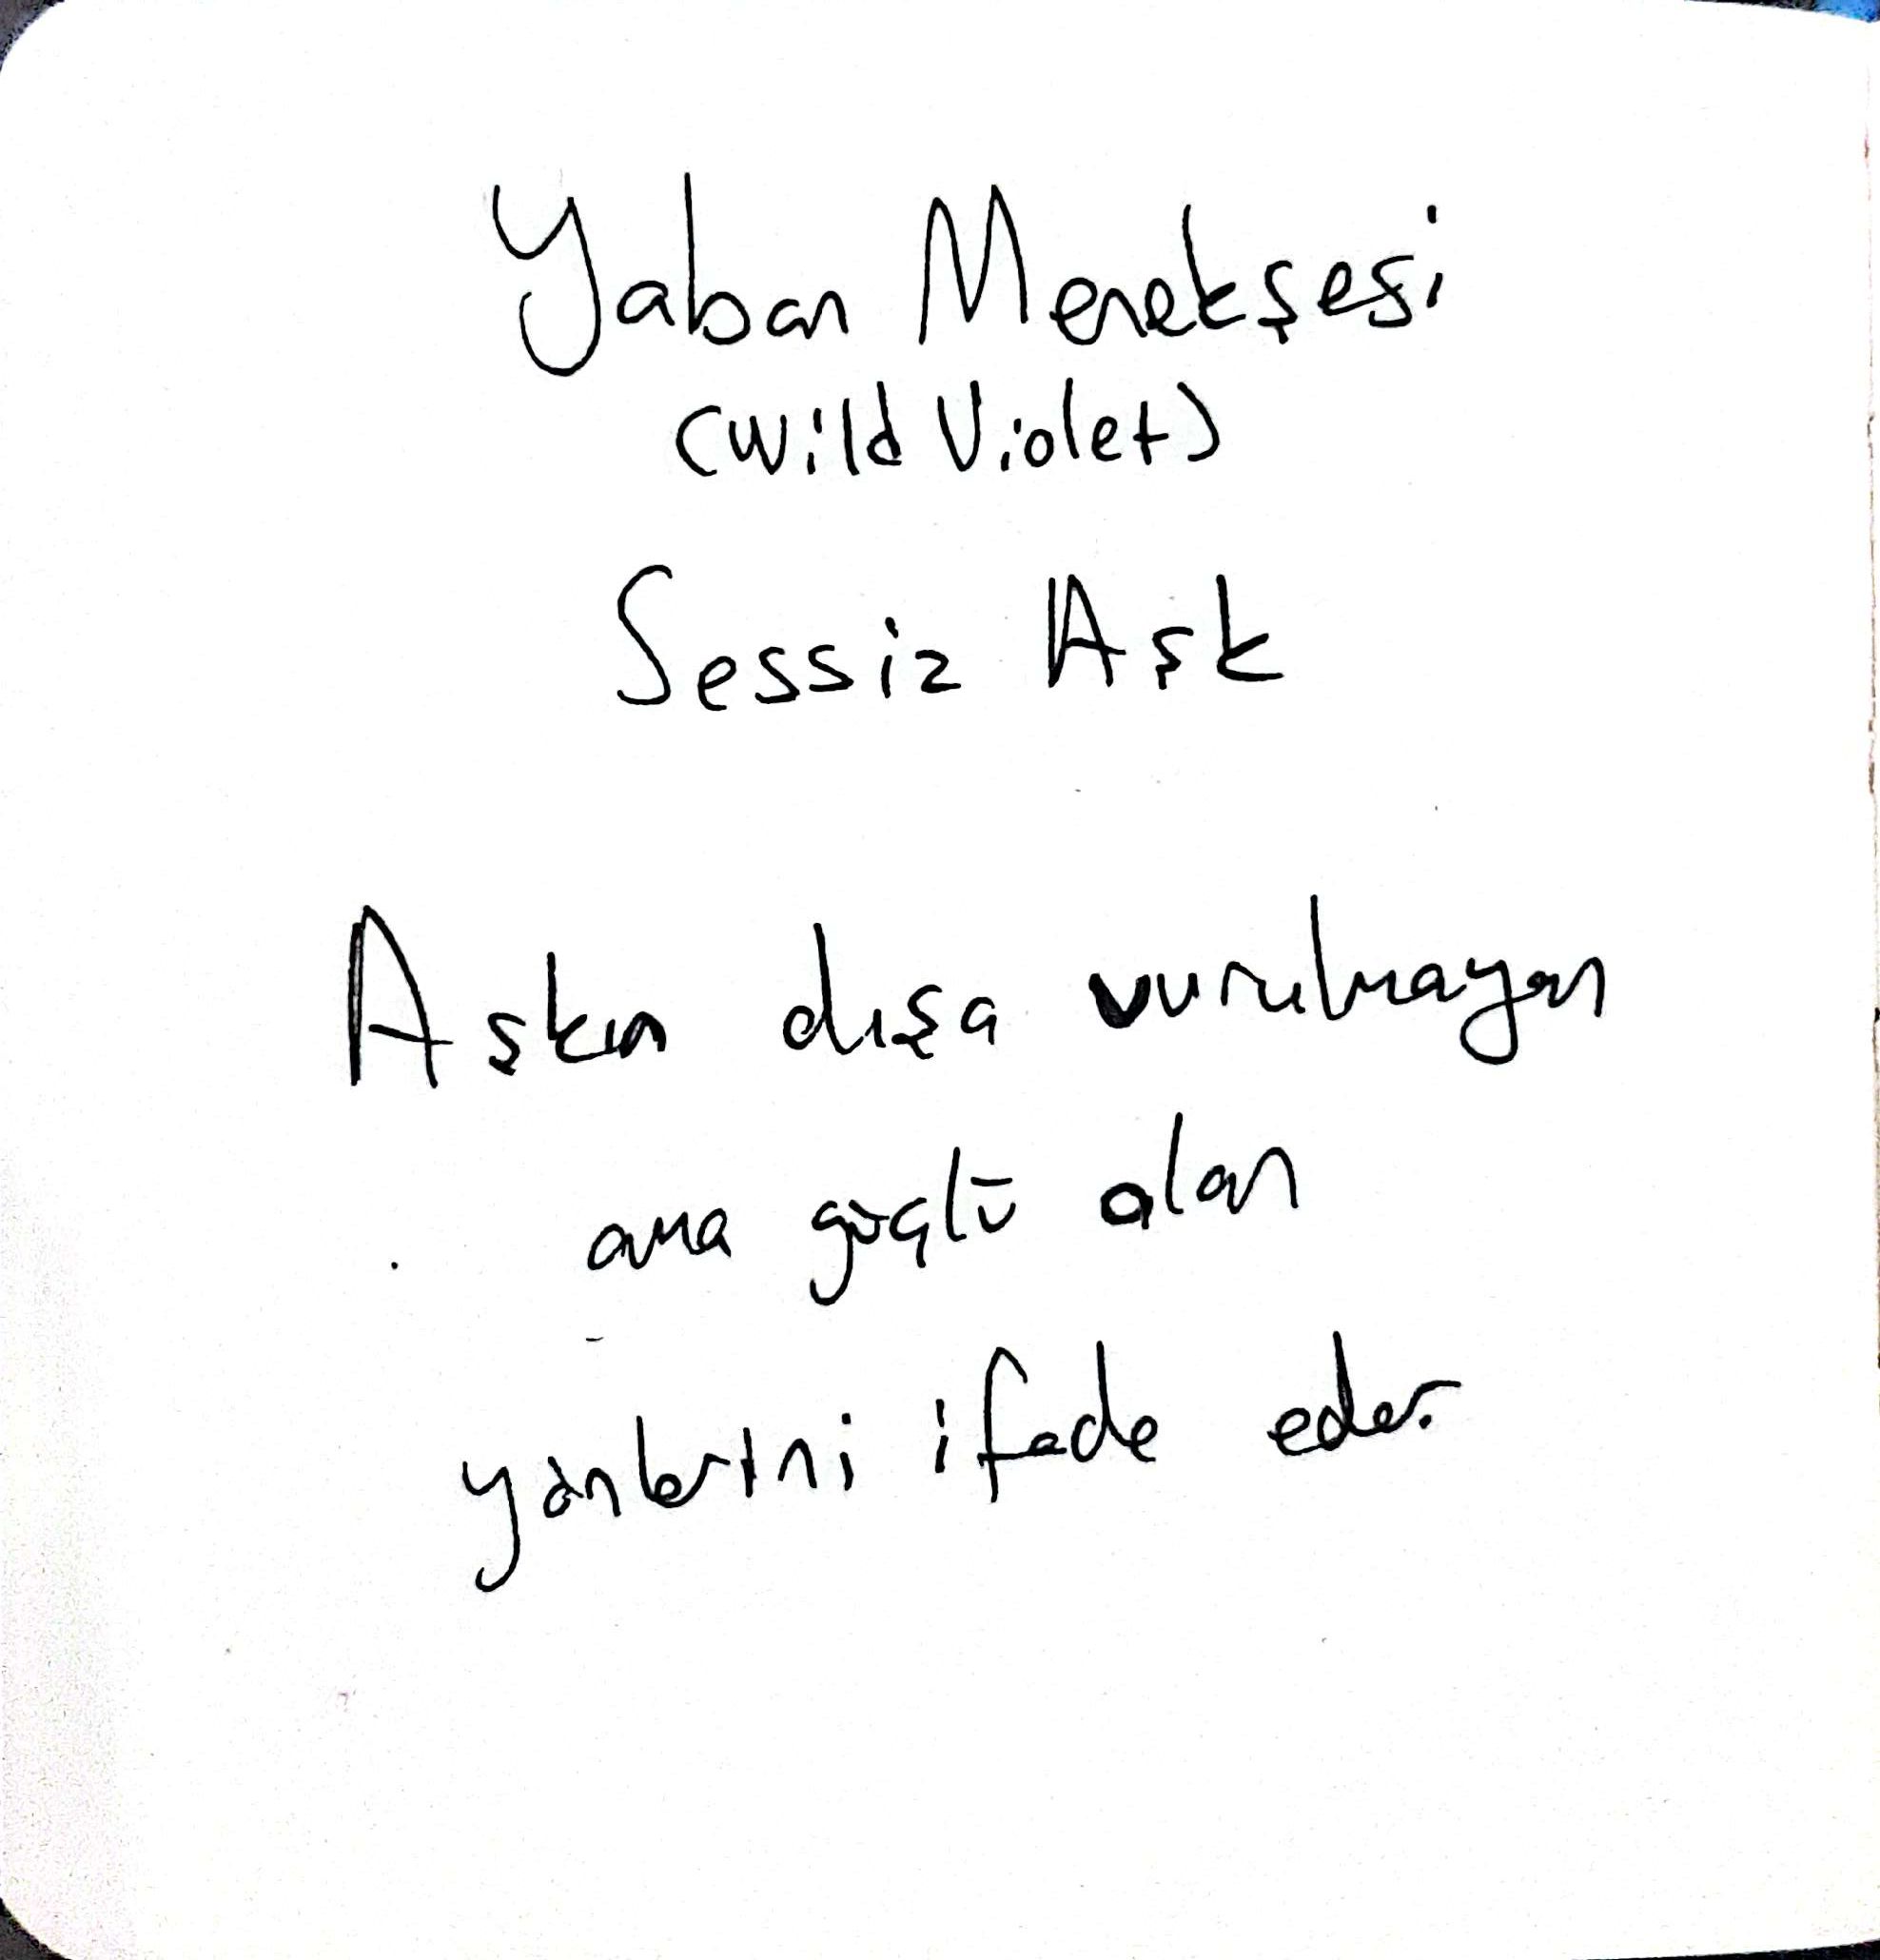 Yaban Menekşesi
(Wild Violet)
Sessiz Aşk
Aşkın dışa vurulmayan
ama güçlü olan
yönlerini ifade eder.